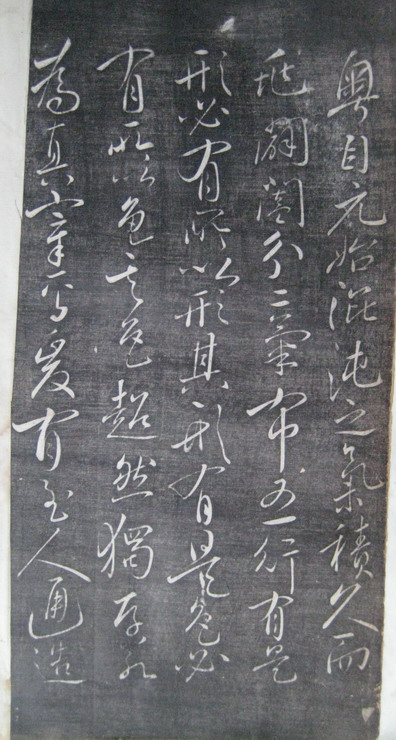 粵自元始混沌之氣積久而
闢闔分二氣布五行有是
形必有所以形其形有是色必
有所以色其色超然獨存
為真宰爰有至人通造